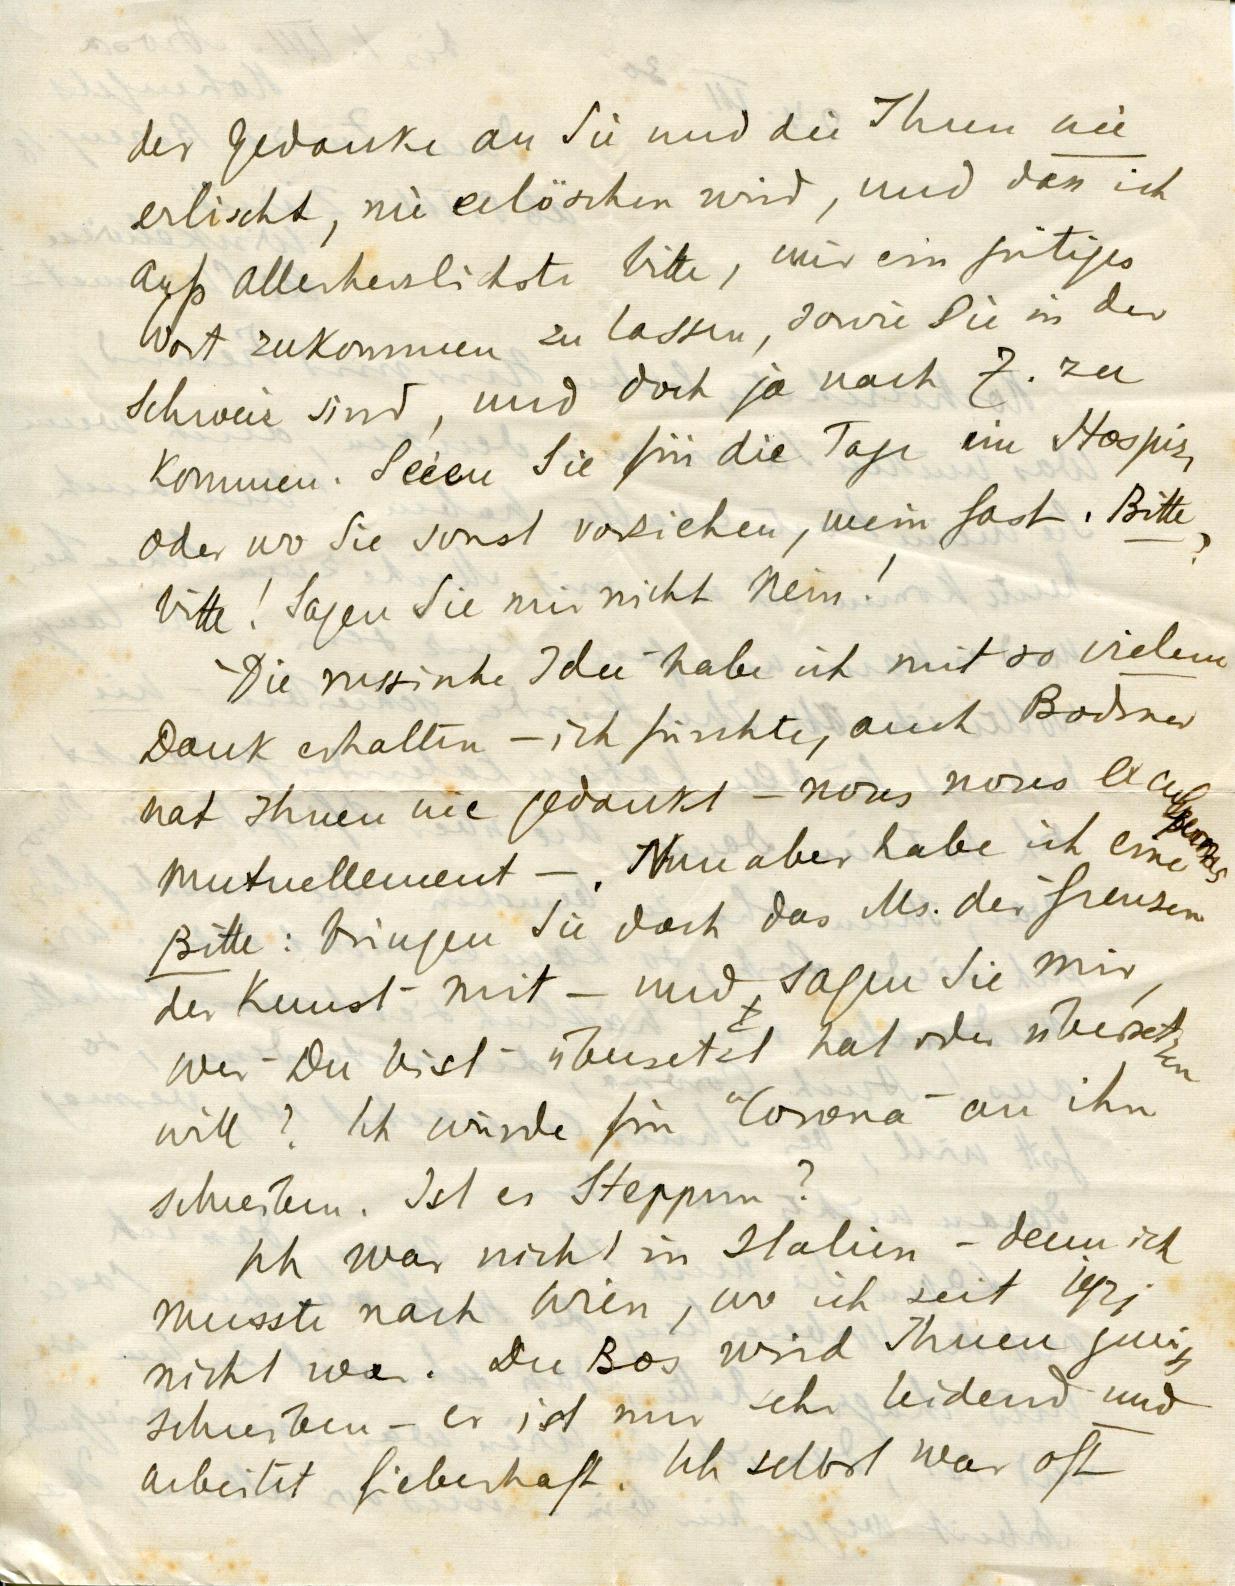 der Gedanke an Sie und die Ihren nie
erlischt, nie erlöschen wird, und dass ich
aufs allerherzlichste bitte, mir ein gütiges
Wort zukommen zu lassen, sowie Sie in der
Schweiz sind, und doch ja nach Z. zu
kommen. Seien Sie für die Tage im Hospiz,
oder wo Sie sonst vorziehen, mein Gast. Bitte,
bitte! Sagen Sie mir nicht Nein!
"Die russische Idee" habe ich mit so vielem
Dank erhalten – ich fürchte, auch Bodmer
hat Ihnen nie gedankt – nous nous excuserons
mutuellement –. Nun aber habe ich eine
Bitte: bringen Sie doch das Ms. der "Grenzen
der Kunst" mit – und sagen Sie mir,
wer "Du bist" übersetzt hat oder übersetzen
will? Ich würde für "Corona" an ihn
schreiben. Ist es Steppun?
Ich war nicht in Italien – denn ich
musste nach Wien, wo ich seit
nicht war. Du Bos wird Ihnen gewiss
schreiben – er ist nur sehr leidend und
arbeitet fieberhaft. Ich selbst war oft